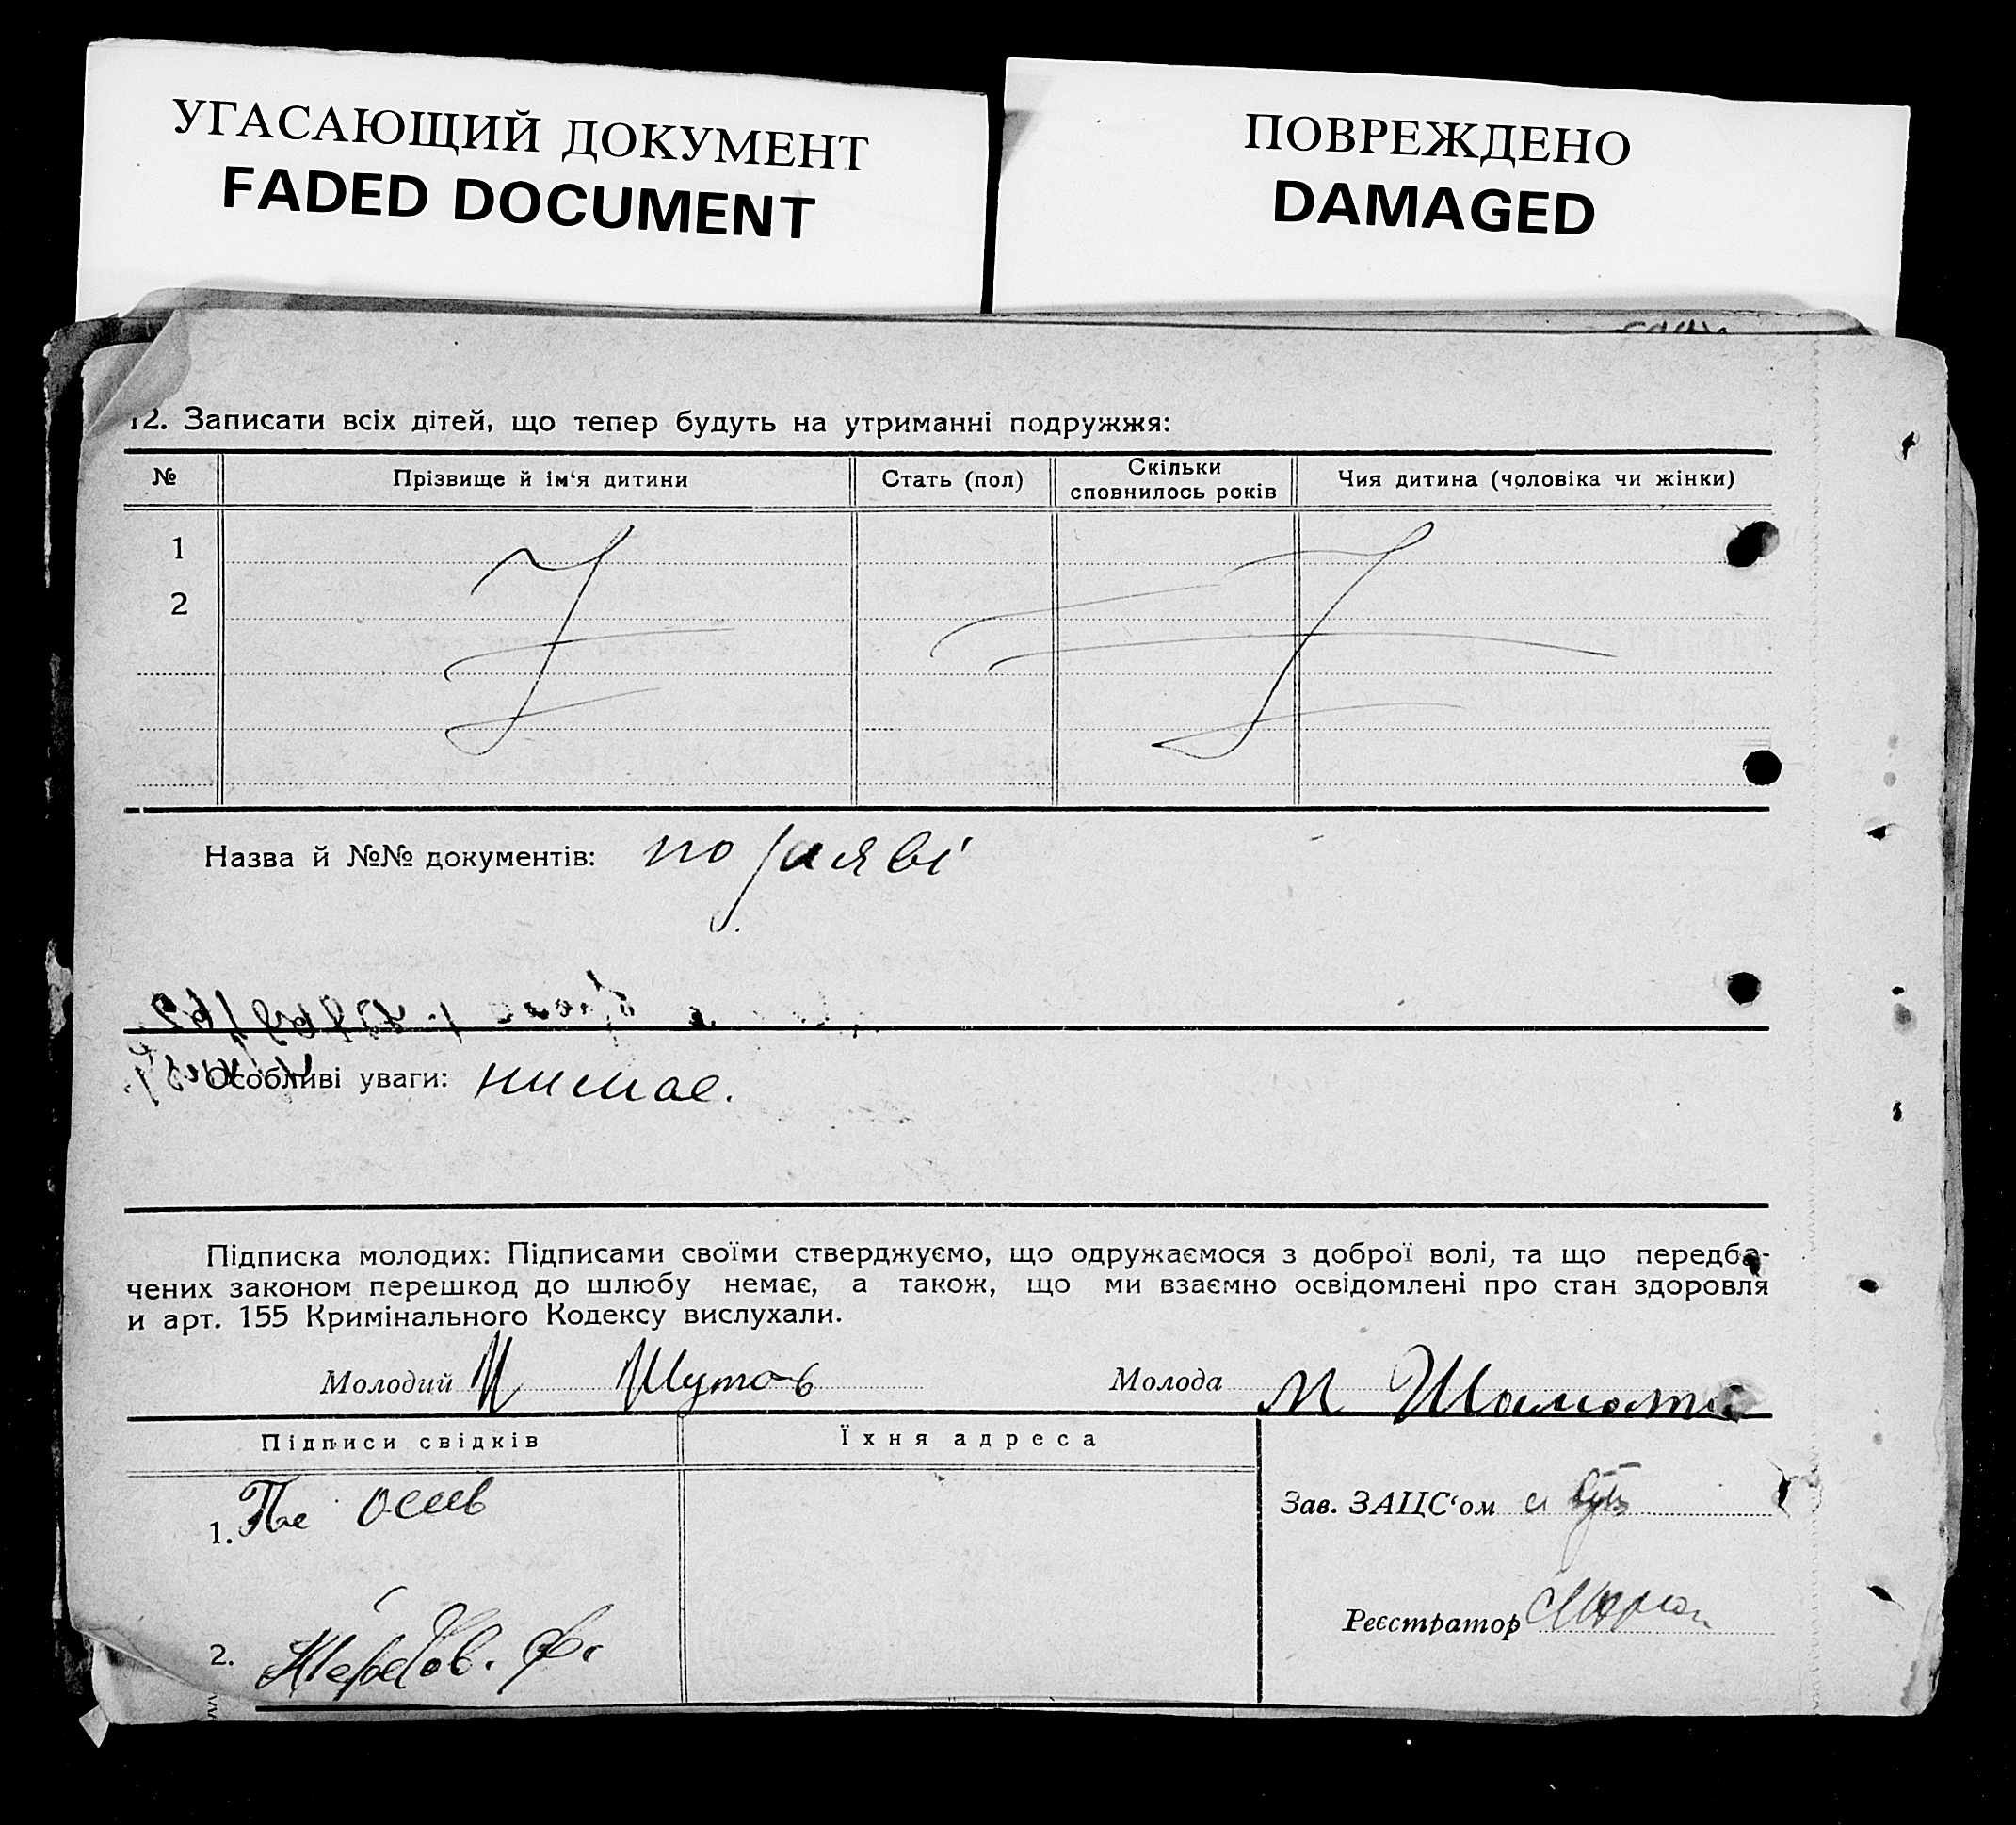 УГАСАЮЩИЙ ДОКУМЕНТ
FADED DOCUMENT
ПОВРЕЖДЕНО
DAMAGED
12. Записати всіх дітей, що тепер будуть на утриманні подружжя:
№ Прізвище й ім'я дитини Стать (пол) Скільки сповнилось років Чия дитина (чоловіка чи жінки)
1
2
Назва й №№ документів: по заяві
Особливі уваги: нимає.
Підписка молодих: Підписами своїми стверджуємо, що одружаємося з доброї волі, та що передба-
чених законом перешкод до шлюбу немає, а також, що ми взаємно освідомлені про стан здоровля
и арт. 155 Кримінального Кодексу вислухали.
Молодий Шутов Молода М Шаматы
Підписи свідків Їхня адреса
1.
Зав. ЗАЦС'ом
Реєстратор
2.